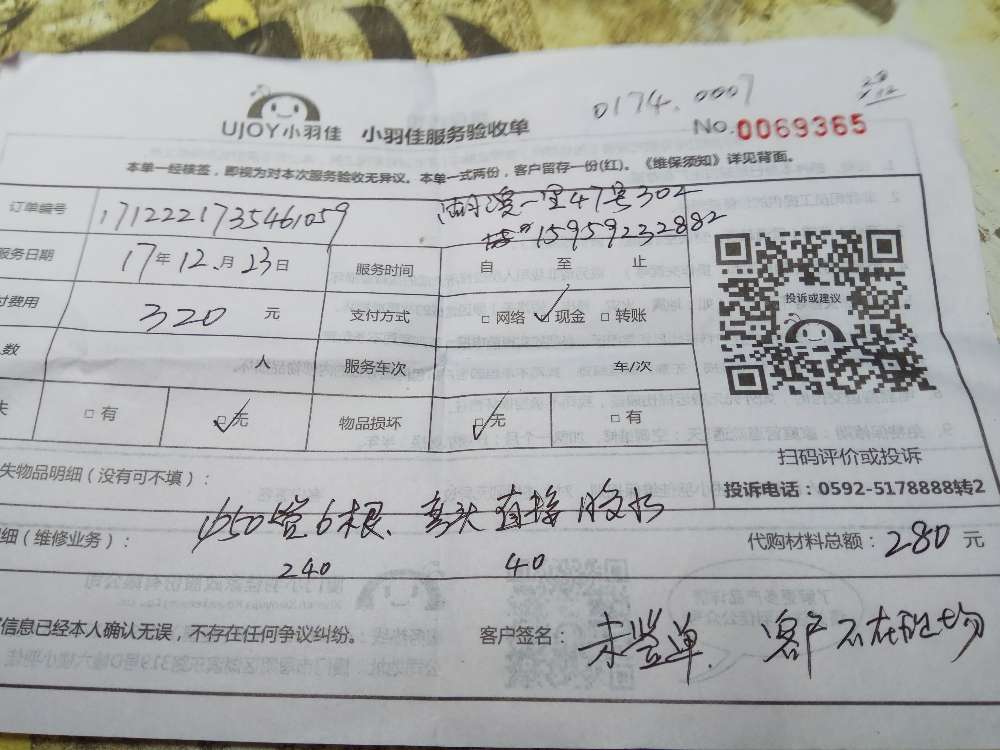 0174.0007
UJOY小羽佳 小羽佳服务验收单 No.0069365
本单一经核签，即视为对本次服务验收无异议。本单一式两份，客户留存一份(红)。《维保须知》详见背面。
订单编号 1712221735461059 一里47号302
15959232882
服务日期 17年12月23日 服务时间 自 至 止
付费用 320 元 支付方式 □网络 ☑现金 □转账
数 人 服务车次 车/次
失 □有 ☑无 物品损坏 ☑无 □有
投诉或建议
扫码评价或投诉
投诉电话：0592-5178888转2
失物品明细（没有可不填）：
细（维修业务）： φ50管6根、弯头 直接 胶水
240 40
代购材料总额：280 元
信息已经本人确认无误，不存在任何争议纠纷。 客户签名： 未签单 客户不在现场